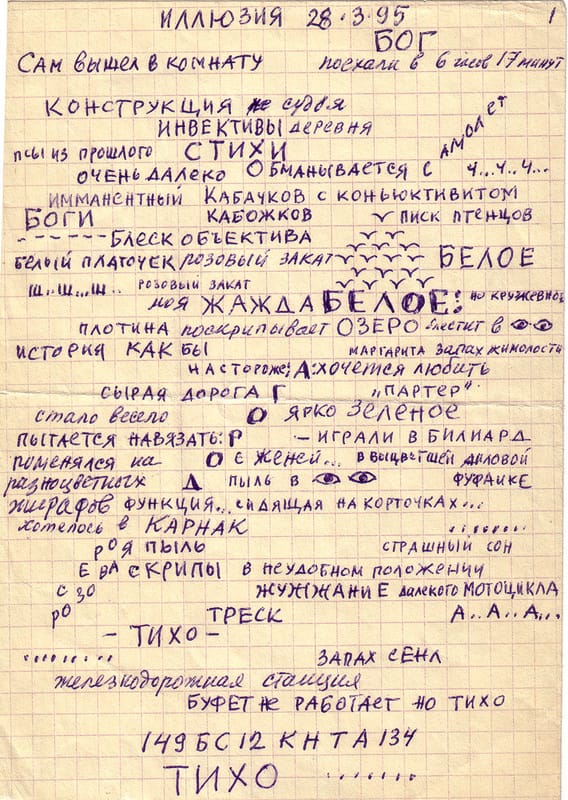 ИЛЛЮЗИЯ 28.3.95 1
БОГ
САМ ВЫШЕЛ В КОМНАТУ поехали в 6 часов 17 минут
КОНСТРУКЦИЯ не судья
АМОЛЕТ
ИНВЕКТИВЫ деревня
ПСЫ ИЗ ПРОШЛОГО СТИХИ
ОЧЕНЬ ДАЛЕКО ОБМАНЫВАЕТСЯ С Ч...Ч...Ч...
ИММАНЕНТНЫЙ КАБАЧКОВ С КОНЬЮКТИВИТОМ
БОГИ КАБОЖКОВ ПИСК ПТЕНЦОВ
------БЛЕСК ОБЪЕКТИВА
БЕЛЫЙ ПЛАТОЧЕК РОЗОВЫЙ ЗАКАТ БЕЛОЕ
Ш...Ш...Ш.. РОЗОВЫЙ ЗАКАТ
моя ЖАЖДА БЕЛОЕ: НО КРУЖЕВНОЕ
ПЛОТИНА поскрипывает ОЗЕРО блестит в
ИСТОРИЯ КАК БЫ МАРГАРИТА ЗАПАХ ЖИМОЛОСТИ
НАСТОРОЖЕ; А: ХОЧЕТСЯ ЛЮБИТЬ
СЫРАЯ ДОРОГА Г „ПАРТЕР"
стало весело О ЯРКО ЗЕЛЕНОЕ
ПЫТАЕТСЯ НАВЯЗАТЬ: Р – ИГРАЛИ В БИЛИАРД
поменялся на О С ЖЕНЕЙ... В ВЫЦВЕТШЕЙ ЛИЛОВОЙ
разноцветных Д ПЫЛЬ В ФУФАЙКЕ
жирафов ФУНКЦИЯ... СИДЯЩАЯ НА КОРТОЧКАХ...
хотелось в КАРНАК ........
РОЯ ПЫЛЬ СТРАШНЫЙ СОН
Е ВА СКРИПЫ В НЕУДОБНОМ ПОЛОЖЕНИИ
С ЗО ЖУЖЖАНИЕ далекого МОТОЦИКЛА
РО ТРЕСК А..А..А...
– ТИХО –
......... ЗАПАХ СЕНА
железнодорожная станция
БУФЕТ НЕ РАБОТАЕТ НО ТИХО
149 БС 12 К Н Т А 134
ТИХО .......